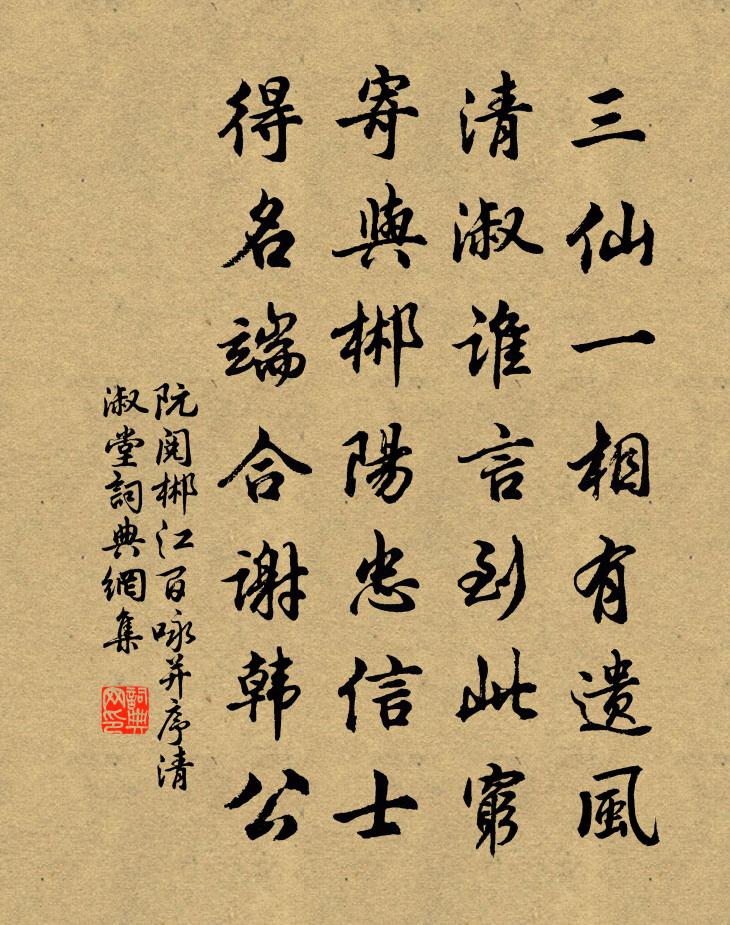 三仙一相有遗風
清淑谁言到此窮
寄與郴陽忠信士
得名端合谢韩公
阮閱郴江百咏并序清
淑堂詞典網集
詞典网印